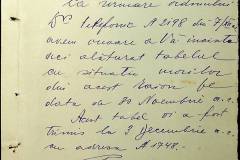 Ca urmare ordinului
Telefonic N 2198 din 7/XII
avem onoare a Vă înainta
aci alăturat tabelul
cu situația morilor
din acest raion pe
data de 30 Noembrie a.c.
Acest tabel vi a fost
trimis la 3 Decembrie a.c.
cu adresa N 1748.-